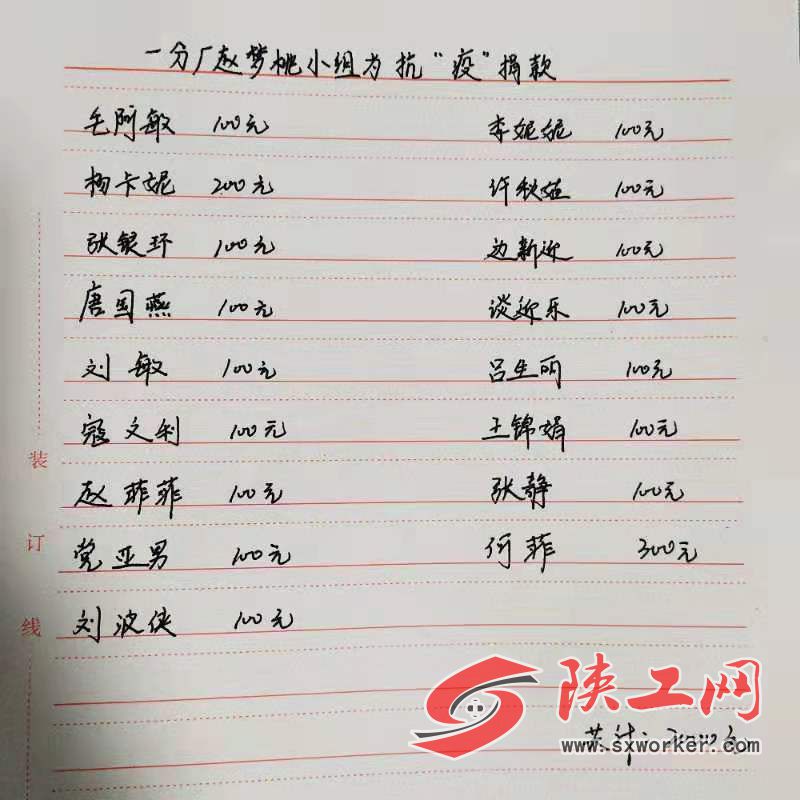 一分厂赵梦桃小组为抗“疫”捐款
毛阿敏 100元 李妮妮 100元
杨卡妮 200元 许秋娃 100元
张银环 100元 边新迎 100元
唐国燕 100元 谈迎乐 100元
刘敏 100元 吕生丽 100元
寇文利 100元 王锦娟 100元
赵菲菲 100元 张静 100元
党亚男 100元 何菲 300元
刘波侠 100元
装
订
线
陕工网
www.sxworker.com